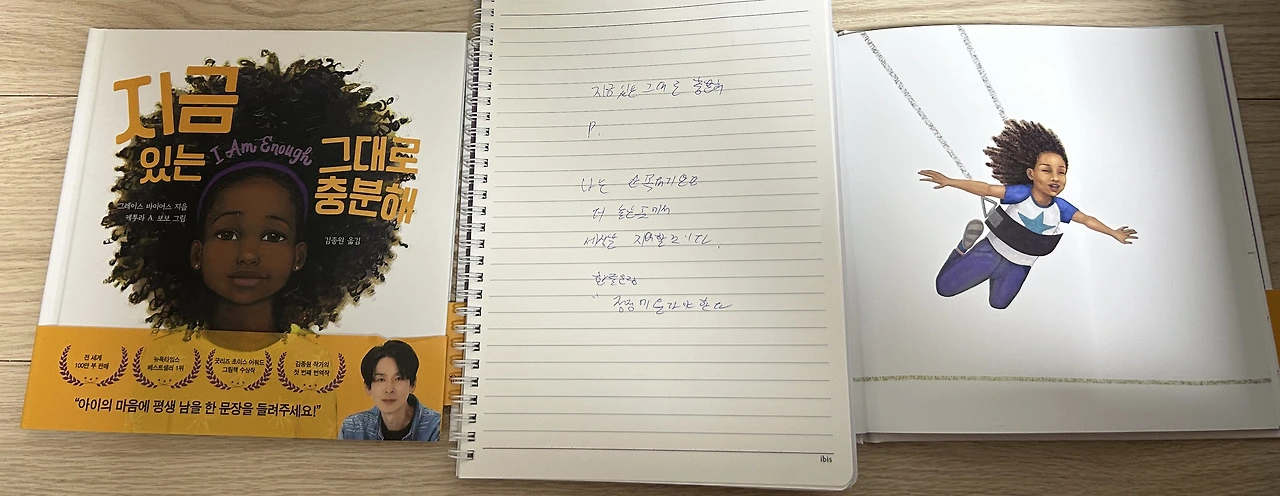 지금
있는
I Am Enough
그대로
충분해
그레이스 바이어스 지음
케투라 A. 보보 그림
김종원 옮김
전 세계
100만 부 판매
뉴욕타임스
베스트셀러 1위
굿리즈 초이스 어워드
그림책 수상작
김종원 작가의
첫 번째 번역작
“아이의 마음에 평생 남을 한 문장을 들려주세요!”
지금 있는 그대로 충분해
P.
나는
더 높은
세상을
ibis